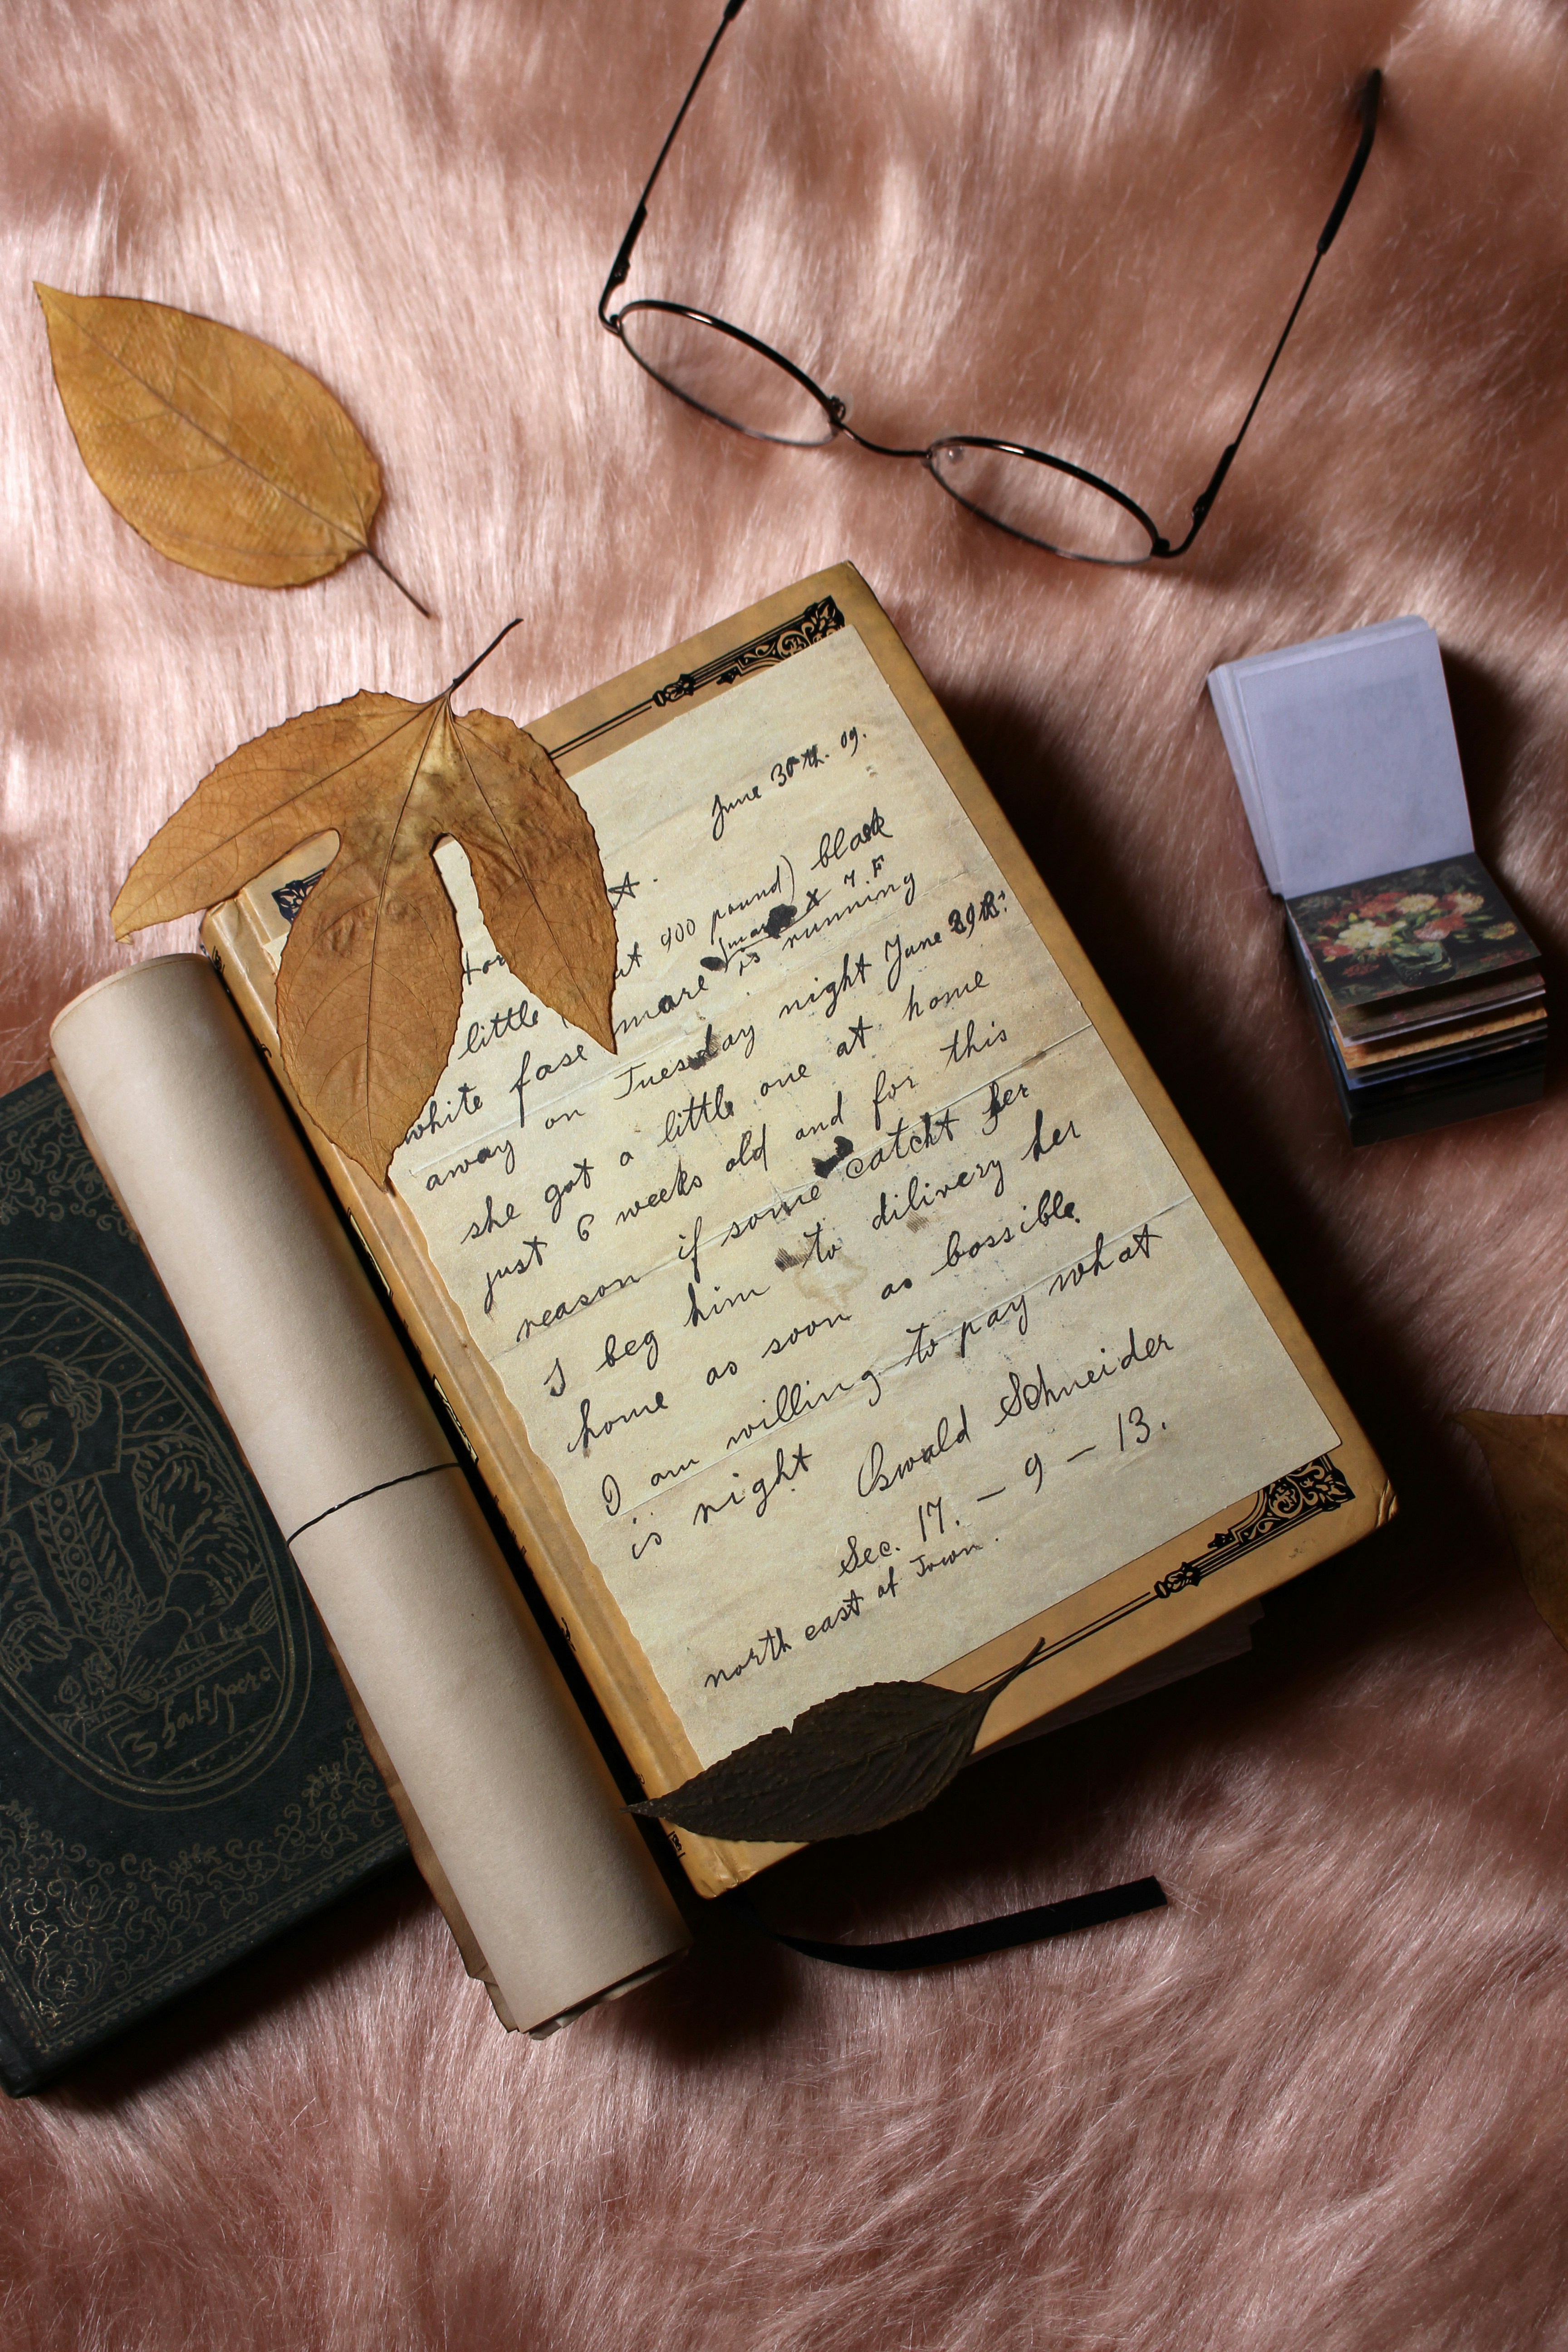 June 30th. 09.
little 900 pound) black
white fase mare is running
away on Tuesday night June 29th.
she got a little one at home
just 6 weeks old and for this
reason if some catcht her
I beg him to dilivery her
home as soon as bossible.
I am willing to pay what
is night Oswald Schneider
Sec. 17. — 9 — 13.
north east of Town.